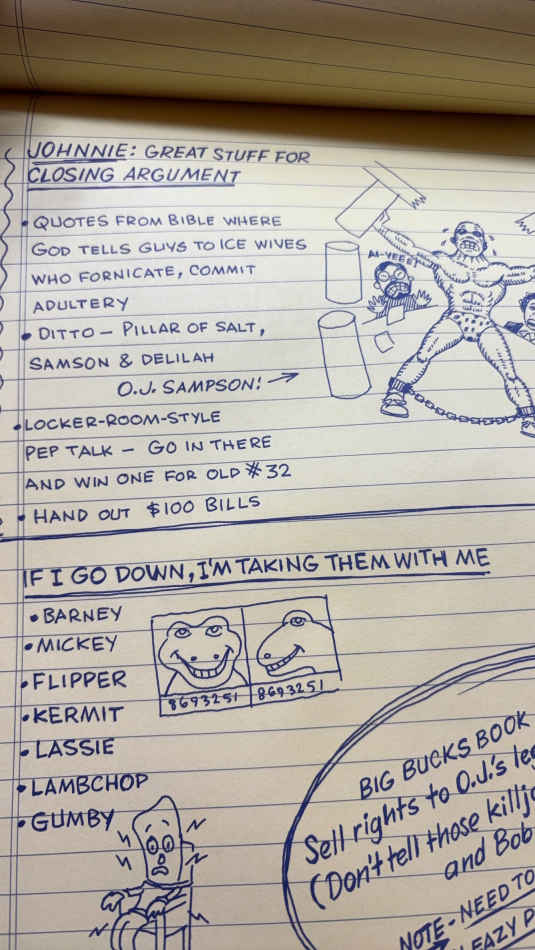 JOHNNIE: GREAT STUFF FOR
CLOSING ARGUMENT
• QUOTES FROM BIBLE WHERE
GOD TELLS GUYS TO ICE WIVES
WHO FORNICATE, COMMIT
ADULTERY
• DITTO — PILLAR OF SALT,
SAMSON & DELILAH
O.J. SAMPSON!
AI-YEEE!
• LOCKER-ROOM-STYLE
PEP TALK — GO IN THERE
AND WIN ONE FOR OLD #32
• HAND OUT $100 BILLS
IF I GO DOWN, I'M TAKING THEM WITH ME
• BARNEY
• MICKEY
• FLIPPER
• KERMIT
• LASSIE
• LAMBCHOP
• GUMBY
8693251 8693251
BIG BUCKS BOOK
Sell rights to O.J.'s
(Don't tell those
and Bob
NOTE - NEED TO